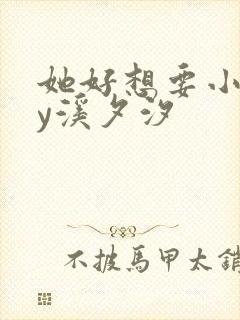 她好想要小
y溪夕汐
不披馬甲太銷